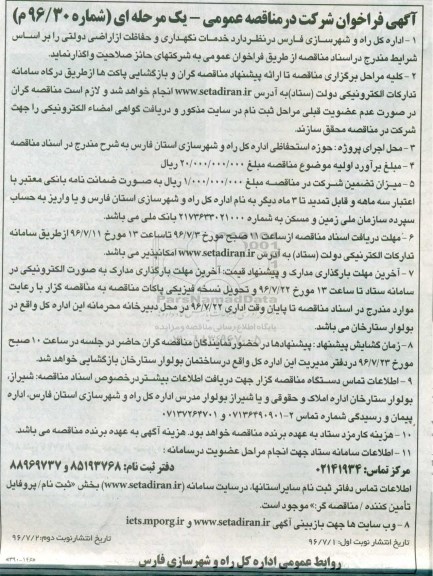 آگهی فراخوان شرکت در مناقصه عمومی – یک مرحله ای (شماره ۹۶/۳۰ م)
۱ - اداره کل راه و شهرسازی فارس در نظر دارد خدمات نگهداری و حفاظت از اراضی دولتی را بر اساس
شرایط مندرج در اسناد مناقصه از طریق فراخوان عمومی به شرکتهای حائز صلاحیت واگذار نماید.
۲ - کلیه مراحل برگزاری مناقصه تا ارائه پیشنهاد مناقصه گران و بازگشایی پاکت ها از طریق درگاه سامانه
تدارکات الکترونیکی دولت (ستاد) به آدرس www.setadiran.ir انجام خواهد شد و لازم است مناقصه گران
در صورت عدم عضویت قبلی مراحل ثبت نام در سایت مذکور و دریافت گواهی امضاء الکترونیکی را جهت
شرکت در مناقصه محقق سازند.
۳ - محل اجرای پروژه: حوزه استحفاظی اداره کل راه و شهرسازی استان فارس به شرح مندرج در اسناد مناقصه
۴ - مبلغ برآورد اولیه موضوع مناقصه مبلغ ۲۰/۰۰۰/۰۰۰/۰۰۰ ریال
۵ - میزان تضمین شرکت در مناقصه مبلغ ۱/۰۰۰/۰۰۰/۰۰۰ ریال به صورت ضمانت نامه بانکی معتبر با
اعتبار سه ماهه و قابل تمدید تا ۳ ماه دیگر به نام اداره کل راه و شهرسازی استان فارس و یا واریز به حساب
سپرده سازمان ملی زمین و مسکن به شماره ۲۱۷۳۶۳۳۰۲۱۰۰۰ بانک ملی می باشد.
۶ - مهلت دریافت اسناد مناقصه از ساعت ۱۱ صبح مورخ ۹۶/۷/۳ تا ساعت ۱۳ مورخ ۹۶/۷/۱۱ از طریق سامانه
تدارکات الکترونیکی دولت (ستاد) به آدرس www.setadiran.ir امکانپذیر می باشد.
۷ - آخرین مهلت بارگذاری مدارک و پیشنهاد قیمت: آخرین مهلت بارگذاری مدارک به صورت الکترونیکی در
سامانه ستاد تا ساعت ۱۳ مورخ ۹۶/۷/۲۲ و تحویل نسخه فیزیکی پاکات مناقصه به مناقصه گزار با رعایت
موارد مندرج در اسناد مناقصه تا پایان وقت اداری ۹۶/۷/۲۲ در محل دبیرخانه محرمانه این اداره کل واقع در
بولوار ستارخان می باشد.
۸ - زمان گشایش پیشنهاد: پیشنهادها در حضور نمایندگان مناقصه گران حاضر در جلسه در ساعت ۱۰ صبح
مورخ ۹۶/۷/۲۳ در دفتر مدیریت این اداره کل واقع در ساختمان بولوار ستارخان بازگشایی خواهد شد.
۹ - اطلاعات تماس دستگاه مناقصه گزار جهت دریافت اطلاعات بیشتر در خصوص اسناد مناقصه: شیراز،
بولوار ستارخان اداره املاک و حقوقی و یا شیراز بولوار مدرس اداره کل راه و شهرسازی استان فارس، اداره
پیمان و رسیدگی شماره تماس ۲-۰۷۱۳۶۴۹۰۹۰۱ و ۰۷۱۳۷۲۶۴۷۰۱
۱۰ - هزینه کارمزد ستاد به عهده برنده مناقصه خواهد بود. هزینه آگهی به عهده برنده مناقصه می باشد.
۱۱ - اطلاعات سامانه ستاد جهت انجام مراحل عضویت در سامانه:
مرکز تماس: ۰۲۱۴۱۹۳۴ دفتر ثبت نام: ۸۵۱۹۳۷۶۸ و ۸۸۹۶۹۷۳۷
اطلاعات تماس دفاتر ثبت نام سایر استانها، در سایت سامانه (www.setadiran.ir) بخش «ثبت نام/پروفایل
تأمین کننده / مناقصه گر» موجود است.
۸ - وب سایت ها جهت بازبینی آگهی www.setadiran.ir و iets.mporg.ir
تاریخ انتشار نوبت اول: ۹۶/۷/۱ تاریخ انتشار نوبت دوم: ۹۶/۷/۲
روابط عمومی اداره کل راه و شهرسازی فارس